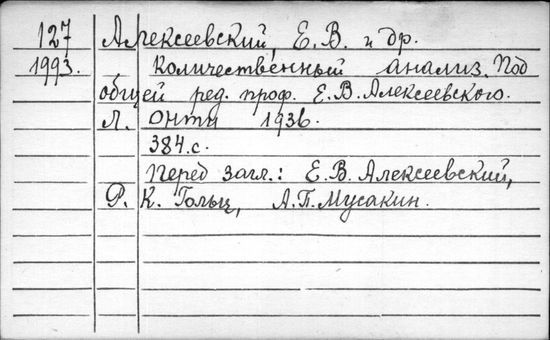 127 Алексеевский, Е.В. и др.
1993. Количественный анализ. Под
общей ред. проф. Е.В. Алексеевского.
Л. ОНТИ 1936.
384.с.
Перед загл.: Е.В. Алексеевский,
Р. К. Гольц, А.П. Мусакин.